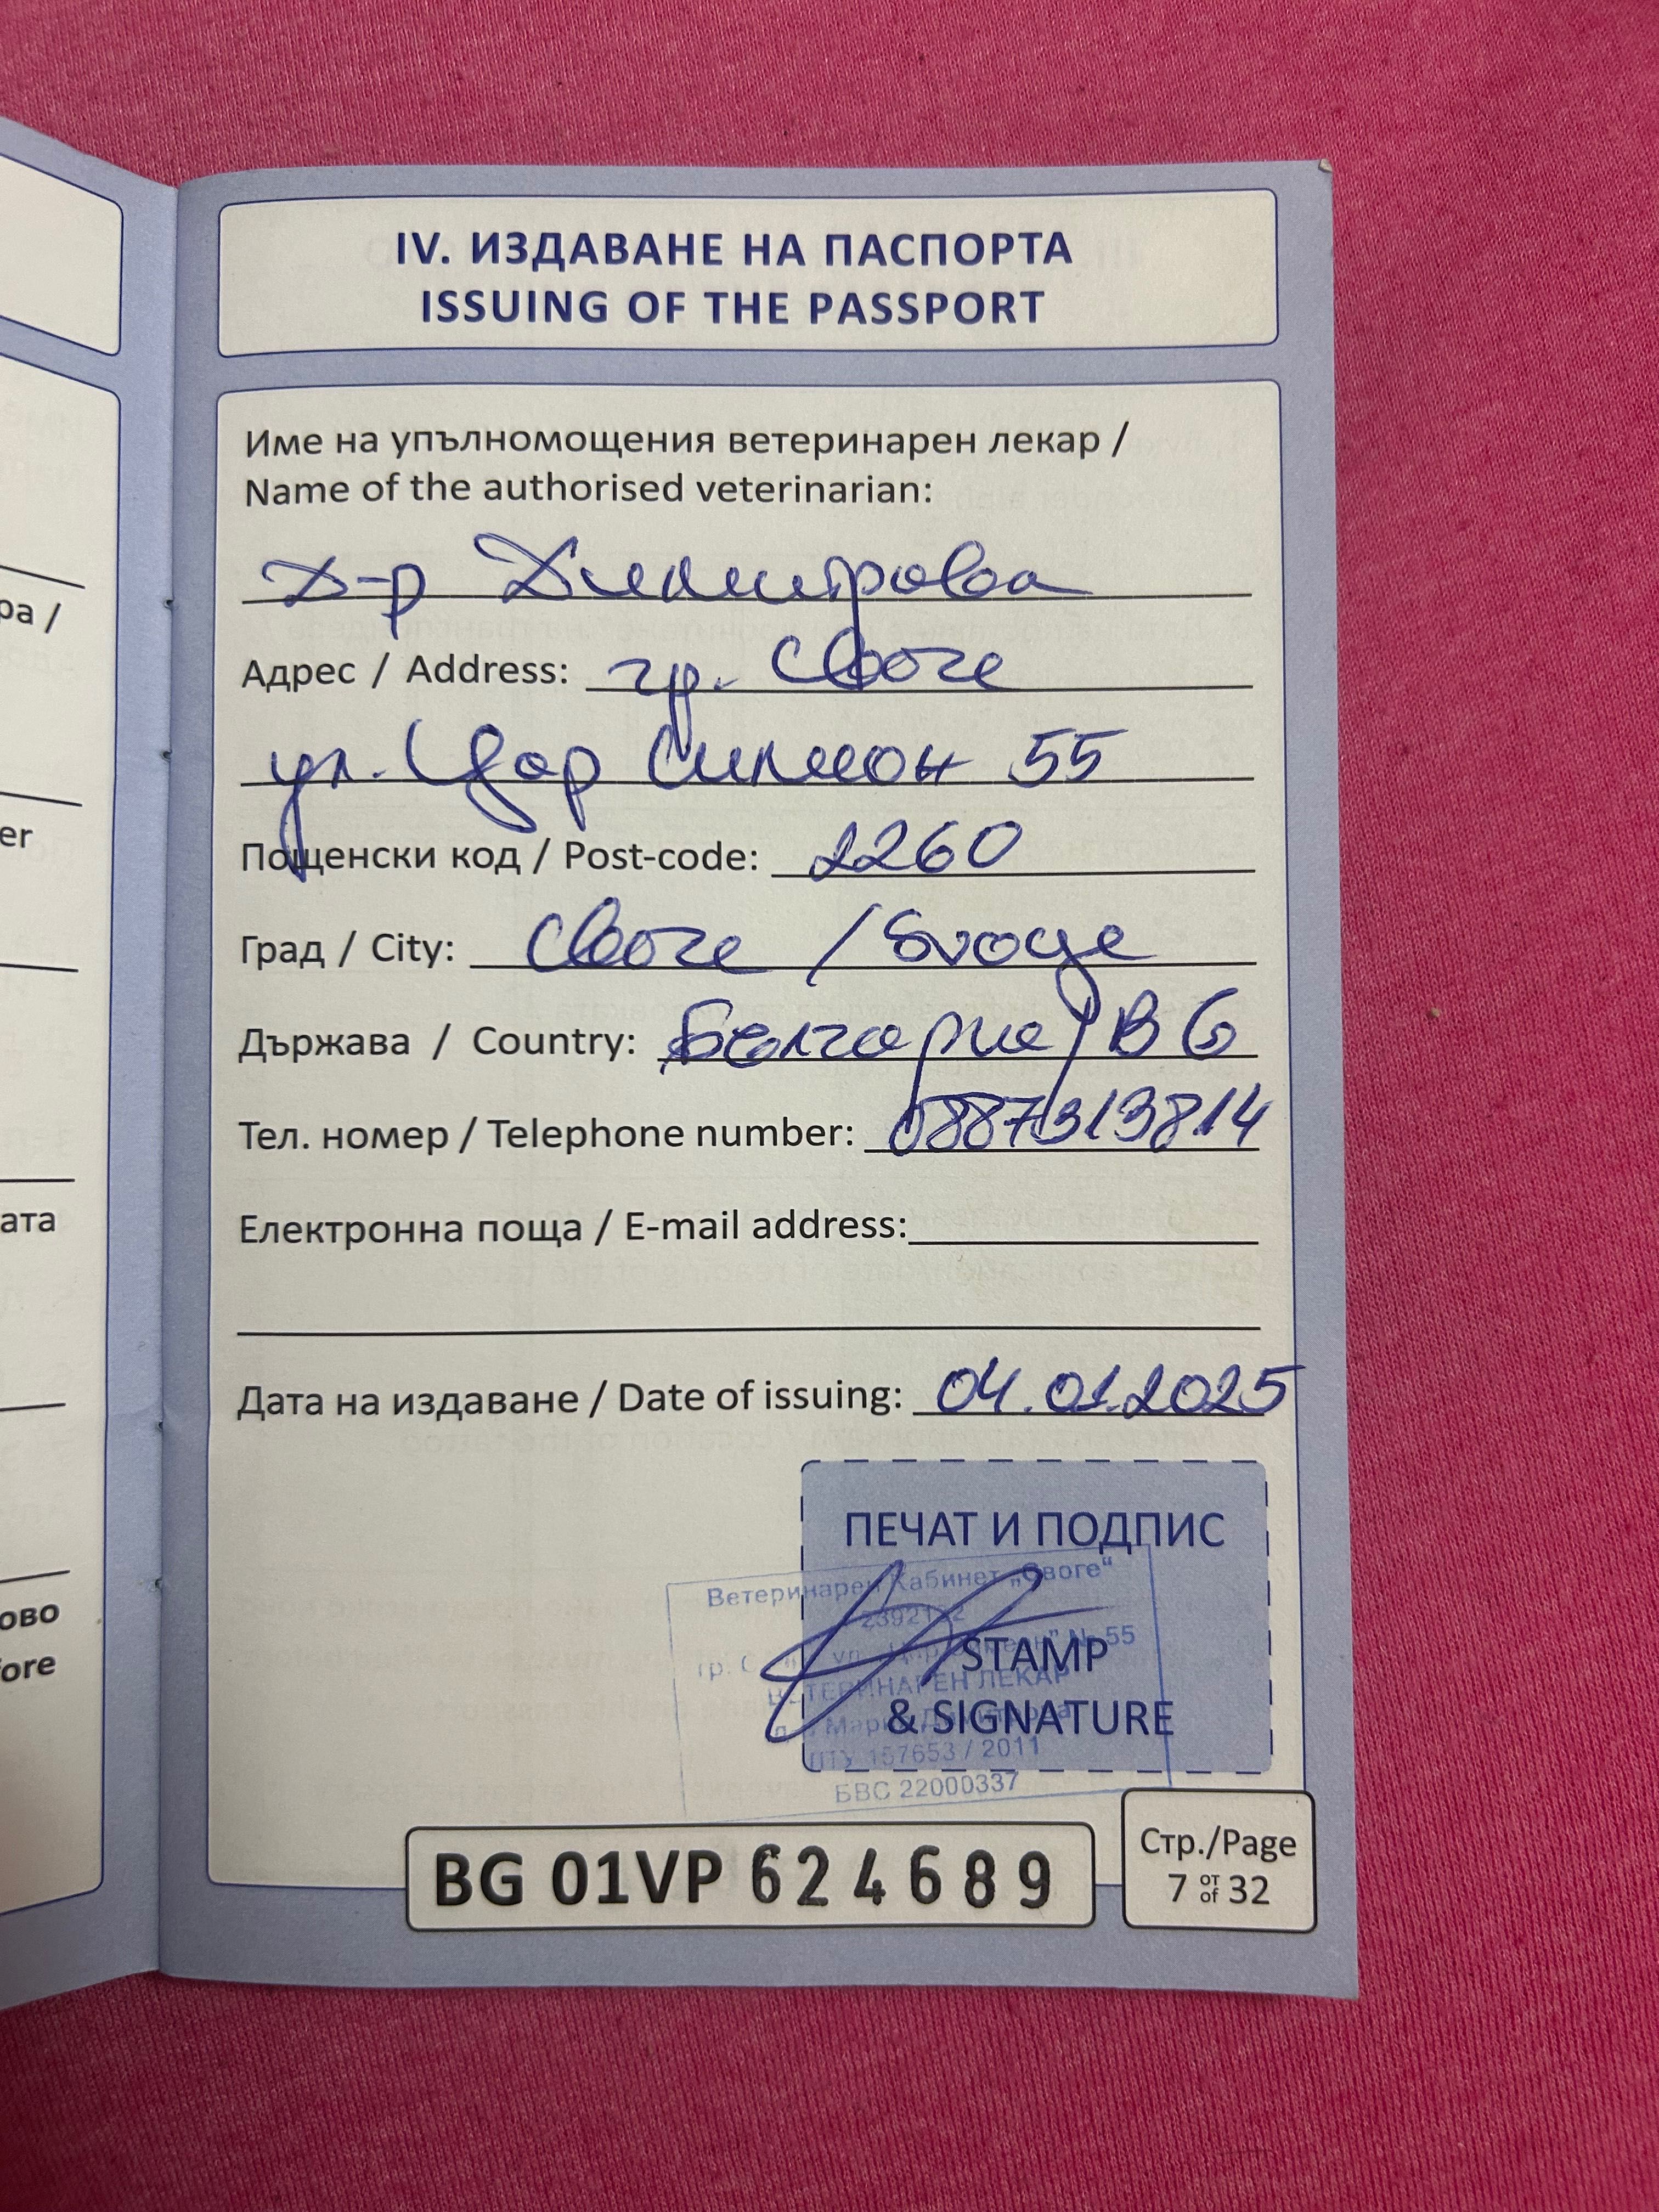 IV. ИЗДАВАНЕ НА ПАСПОРТА
ISSUING OF THE PASSPORT
Име на упълномощения ветеринарен лекар /
Name of the authorised veterinarian:
Д-р Димитрова
Адрес / Address: гр. Своге
ул. Цар Симеон 55
Пощенски код / Post-code: 2260
Град / City: Своге / Svoge
Държава / Country: България / BG
Тел. номер / Telephone number: 0887313814
Електронна поща / E-mail address:
Дата на издаване / Date of issuing: 04.01.2025
ПЕЧАТ И ПОДПИС
STAMP
& SIGNATURE
Ветеринарен Кабинет „Своге“
гр. ул. № 55
ВЕТЕРИНАРЕН ЛЕКАР
Димитрова
157653 / 2011
БВС 22000337
BG 01VP 624689
Стр./Page
7 от of 32
ра /
er
ата
ово
fore